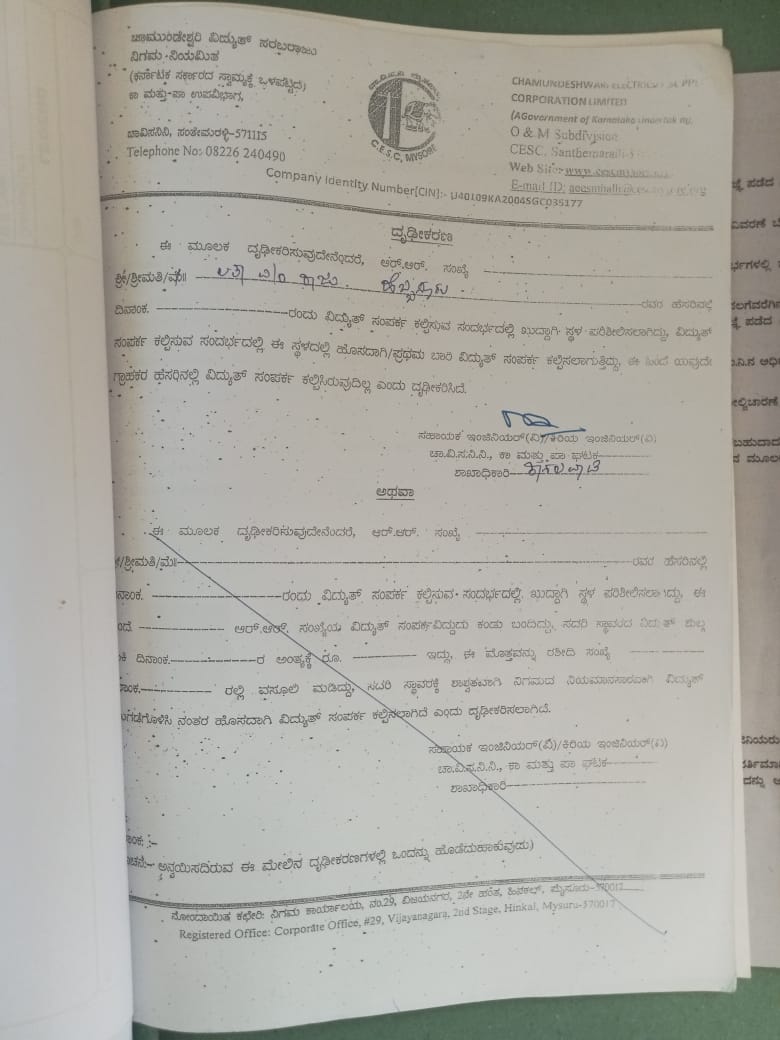 ಚಾಮುಂಡೇಶ್ವರಿ ವಿದ್ಯುತ್ ಸರಬರಾಜು
ನಿಗಮ ನಿಯಮಿತ
(ಕರ್ನಾಟಕ ಸರ್ಕಾರದ ಸ್ವಾಮ್ಯಕ್ಕೆ ಒಳಪಟ್ಟಿದೆ)
ಕಾ ಮತ್ತು ಪಾ ಉಪವಿಭಾಗ,
ಚಾವಿಸನಿನಿ, ಸಂತೇಮರಳ್ಳಿ-571115
Telephone No: 08226 240490
C.E.S.C, MYSORE
CHAMUNDESHWARI
CORPORATION LIMITED
(AGovernment of Karnataka
O & M Subdivision
CESC, Santhemaralli
Web Site:
E-mail ID:
Company Identity Number[CIN]:- U40109KA2004SGC035177
ದೃಢೀಕರಣ
ಈ ಮೂಲಕ ದೃಢೀಕರಿಸುವುದೇನೆಂದರೆ, ಆರ್.ಆರ್. ಸಂಖ್ಯೆ
ಶ್ರೀ/ಶ್ರೀಮತಿ/ಮೆ॥ ರವರ ಹೆಸರಿನಲ್ಲಿ
ದಿನಾಂಕ. ರಂದು ವಿದ್ಯುತ್ ಸಂಪರ್ಕ ಕಲ್ಪಿಸುವ ಸಂದರ್ಭದಲ್ಲಿ ಖುದ್ದಾಗಿ ಸ್ಥಳ ಪರಿಶೀಲಿಸಲಾಗಿದ್ದು, ವಿದ್ಯುತ್
ಸಂಪರ್ಕ ಕಲ್ಪಿಸುವ ಸಂದರ್ಭದಲ್ಲಿ ಈ ಸ್ಥಳದಲ್ಲಿ ಹೊಸದಾಗಿ/ಪ್ರಥಮ ಬಾರಿ ವಿದ್ಯುತ್ ಸಂಪರ್ಕ ಕಲ್ಪಿಸಲಾಗುತ್ತಿದ್ದು, ಈ ಹಿಂದೆ ಯಾವುದೇ
ಗ್ರಾಹಕರ ಹೆಸರಿನಲ್ಲಿ ವಿದ್ಯುತ್ ಸಂಪರ್ಕ ಕಲ್ಪಿಸಿರುವುದಿಲ್ಲ ಎಂದು ದೃಢೀಕರಿಸಿದೆ.
ಸಹಾಯಕ ಇಂಜಿನಿಯರ್(ವಿ)/ಕಿರಿಯ ಇಂಜಿನಿಯರ್(ವಿ)
ಚಾ.ವಿ.ಸ.ನಿ.ನಿ., ಕಾ ಮತ್ತು ಪಾ ಘಟಕ
ಶಾಖಾಧಿಕಾರಿ-
ಅಥವಾ
ಈ ಮೂಲಕ ದೃಢೀಕರಿಸುವುದೇನೆಂದರೆ, ಆರ್.ಆರ್. ಸಂಖ್ಯೆ
/ಶ್ರೀಮತಿ/ಮೆ॥ ರವರ ಹೆಸರಿನಲ್ಲಿ
ನಾಂಕ. ರಂದು ವಿದ್ಯುತ್ ಸಂಪರ್ಕ ಕಲ್ಪಿಸುವ ಸಂದರ್ಭದಲ್ಲಿ ಖುದ್ದಾಗಿ ಸ್ಥಳ ಪರಿಶೀಲಿಸಲಾಗಿದ್ದು, ಈ
ಂದೆ ಆರ್.ಆರ್. ಸಂಖ್ಯೆಯ ವಿದ್ಯುತ್ ಸಂಪರ್ಕವಿದ್ದುದು ಕಂಡು ಬಂದಿದ್ದು, ಸದರಿ ಸ್ಥಾವರದ ವಿದ್ಯುತ್ ಶುಲ್ಕ
ಕಿ ದಿನಾಂಕ. ರ ಅಂತ್ಯಕ್ಕೆ ರೂ. ಇದ್ದು, ಈ ಮೊತ್ತವನ್ನು ರಶೀದಿ ಸಂಖ್ಯೆ
ನಾಂಕ. ರಲ್ಲಿ ವಸೂಲಿ ಮಾಡಿದ್ದು, ಸದರಿ ಸ್ಥಾವರಕ್ಕೆ ಶಾಶ್ವತವಾಗಿ ನಿಗಮದ ನಿಯಮಾನುಸಾರವಾಗಿ ವಿದ್ಯುತ್
ುಗಡೆಗೊಳಿಸಿ ನಂತರ ಹೊಸದಾಗಿ ವಿದ್ಯುತ್ ಸಂಪರ್ಕ ಕಲ್ಪಿಸಲಾಗಿದೆ ಎಂದು ದೃಢೀಕರಿಸಲಾಗಿದೆ.
ಸಹಾಯಕ ಇಂಜಿನಿಯರ್(ವಿ)/ಕಿರಿಯ ಇಂಜಿನಿಯರ್(ವಿ)
ಚಾ.ವಿ.ಸ.ನಿ.ನಿ., ಕಾ ಮತ್ತು ಪಾ ಘಟಕ
ಶಾಖಾಧಿಕಾರಿ
ಾಂಕ: :-
ಚನೆ:- ಅನ್ವಯಿಸದಿರುವ ಈ ಮೇಲಿನ ದೃಢೀಕರಣಗಳಲ್ಲಿ ಒಂದನ್ನು ಹೊಡೆದುಹಾಕುವುದು)
ನೋಂದಾಯಿತ ಕಛೇರಿ: ನಿಗಮ ಕಾರ್ಯಾಲಯ, ನಂ.29, ವಿಜಯನಗರ, 2ನೇ ಹಂತ, ಹಿನಕಲ್, ಮೈಸೂರು-570017
Registered Office: Corporate Office, #29, Vijayanagara, 2nd Stage, Hinkal, Mysuru-570017